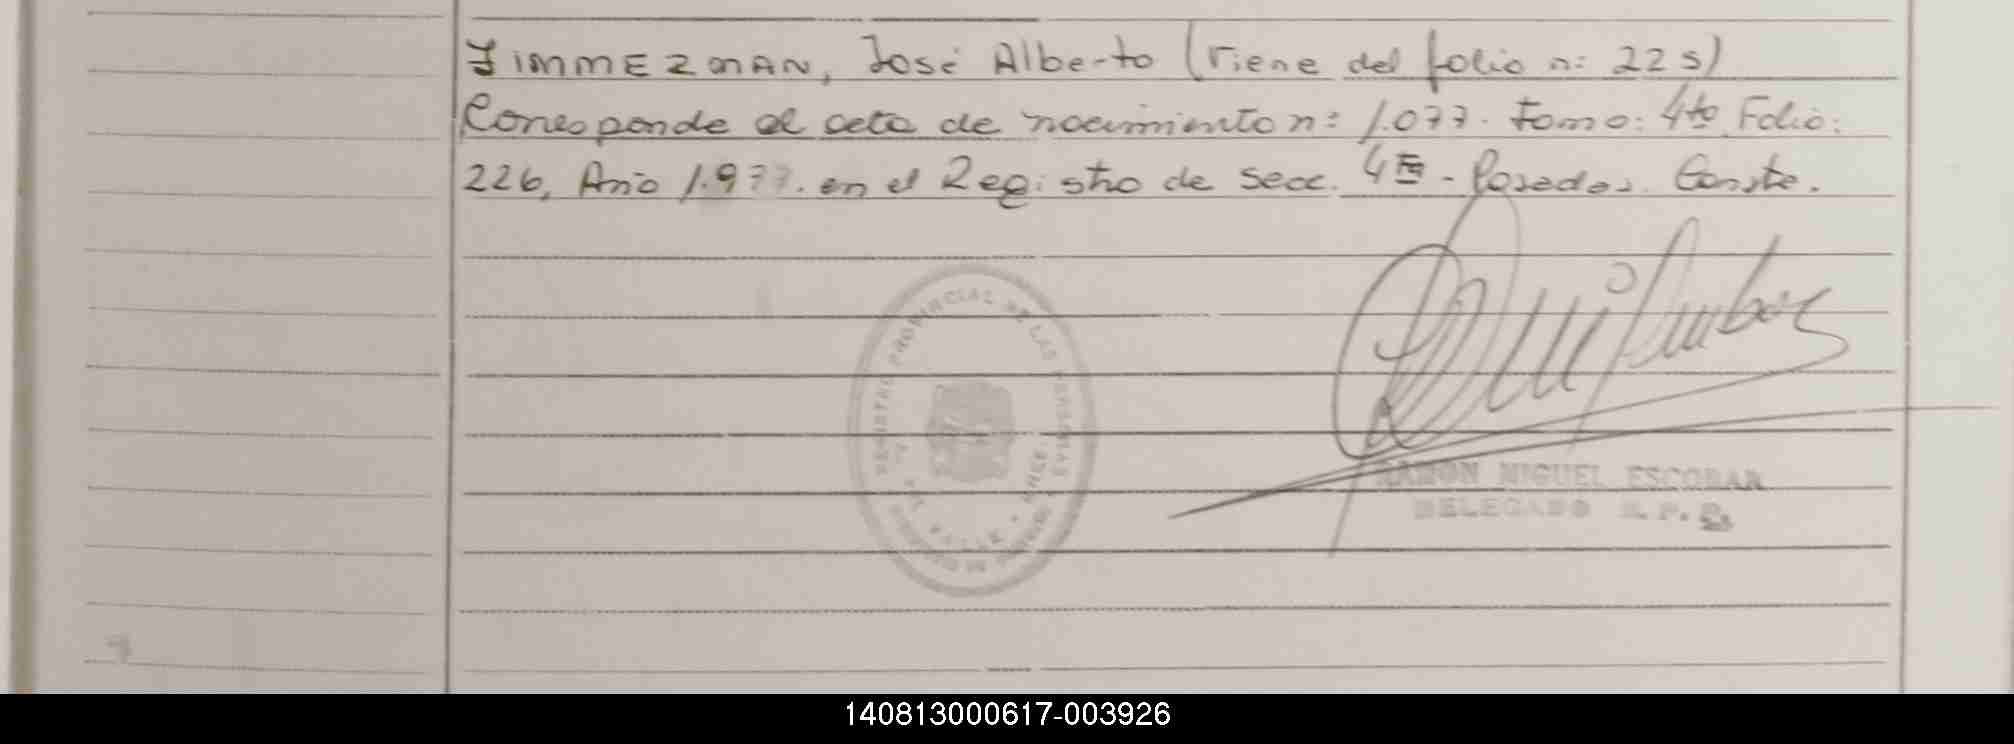 ZIMMERMAN, José Alberto (viene del folio n: 225)
Corresponde al acta de nacimiento n: 1.077. Tomo: 4to. Folio:
226, Año 1.977. en el Registro de secc. 4ta - Posadas. Conste.
REGISTRO PROVINCIAL DE LAS PERSONAS
RAMON MIGUEL ESCOBAR
DELEGADO R. P. P.
140813000617-003926